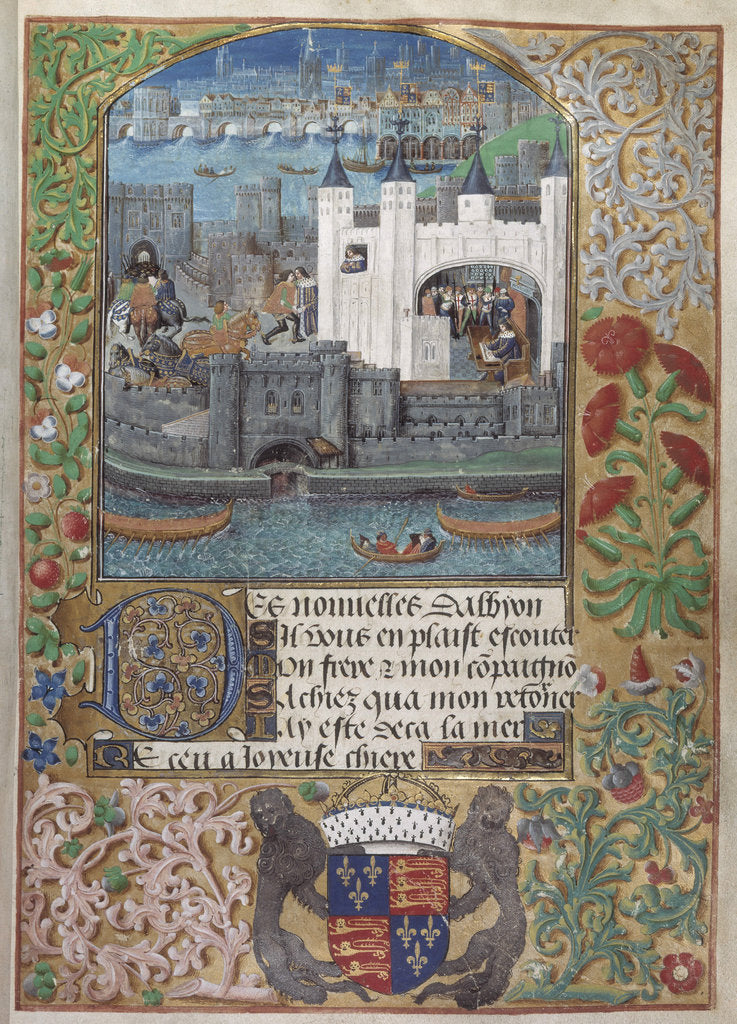 Des nouuelles Dalbyon
Sil vous en plaist escouter
Mon frere & mon cõpaignõ
Sachiez qua mon retorner
Iay este deca la mer
Receu a Joyeuse chiere